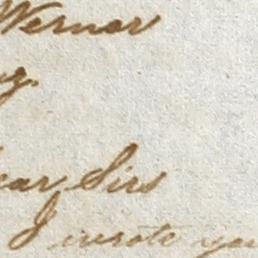 Werner
y.
ear Sirs
I wrote you